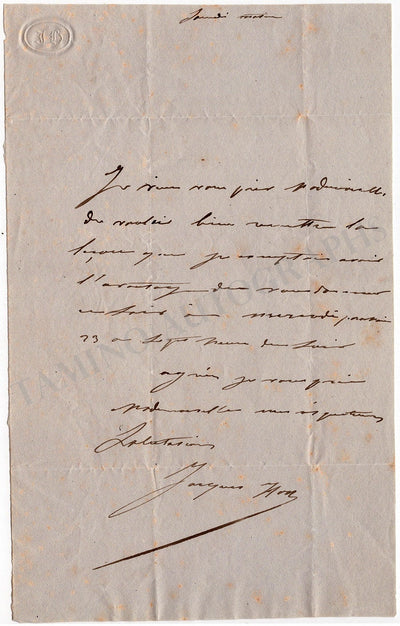 Samedi matin
Je viens vous prier Mademoiselle
de vouloir bien remettre la
leçon que je comptais avoir
l'avantage de vous donner
ce soir à mercredi prochain
23 à sept heures du soir
agréez je vous prie
Mademoiselle mes respectueuses
Salutations
Jacques
TAMINO AUTOGRAPHS